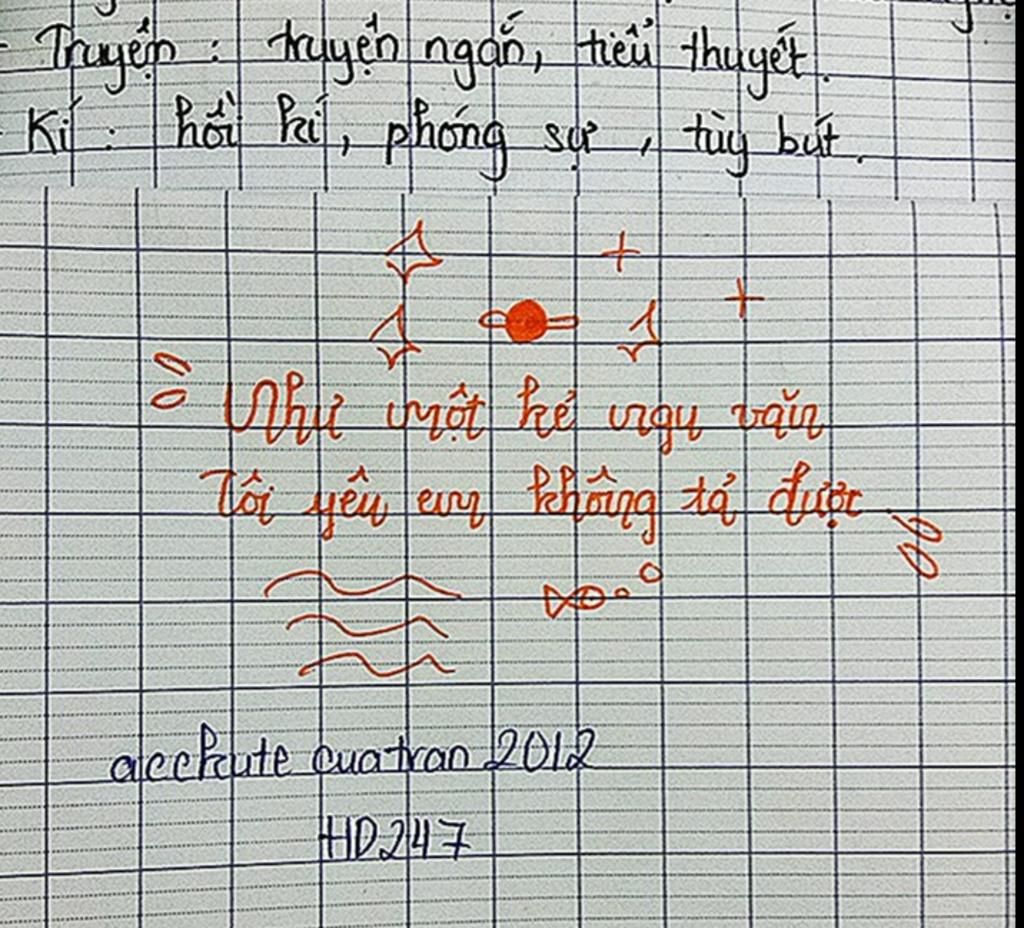 - Truyện : truyện ngắn, tiểu thuyết.
- Kí : hồi kí, phóng sự, tùy bút.
Như một kẻ ngu văn
Tôi yêu em không tả được
acckute cuatran 2012
HD247